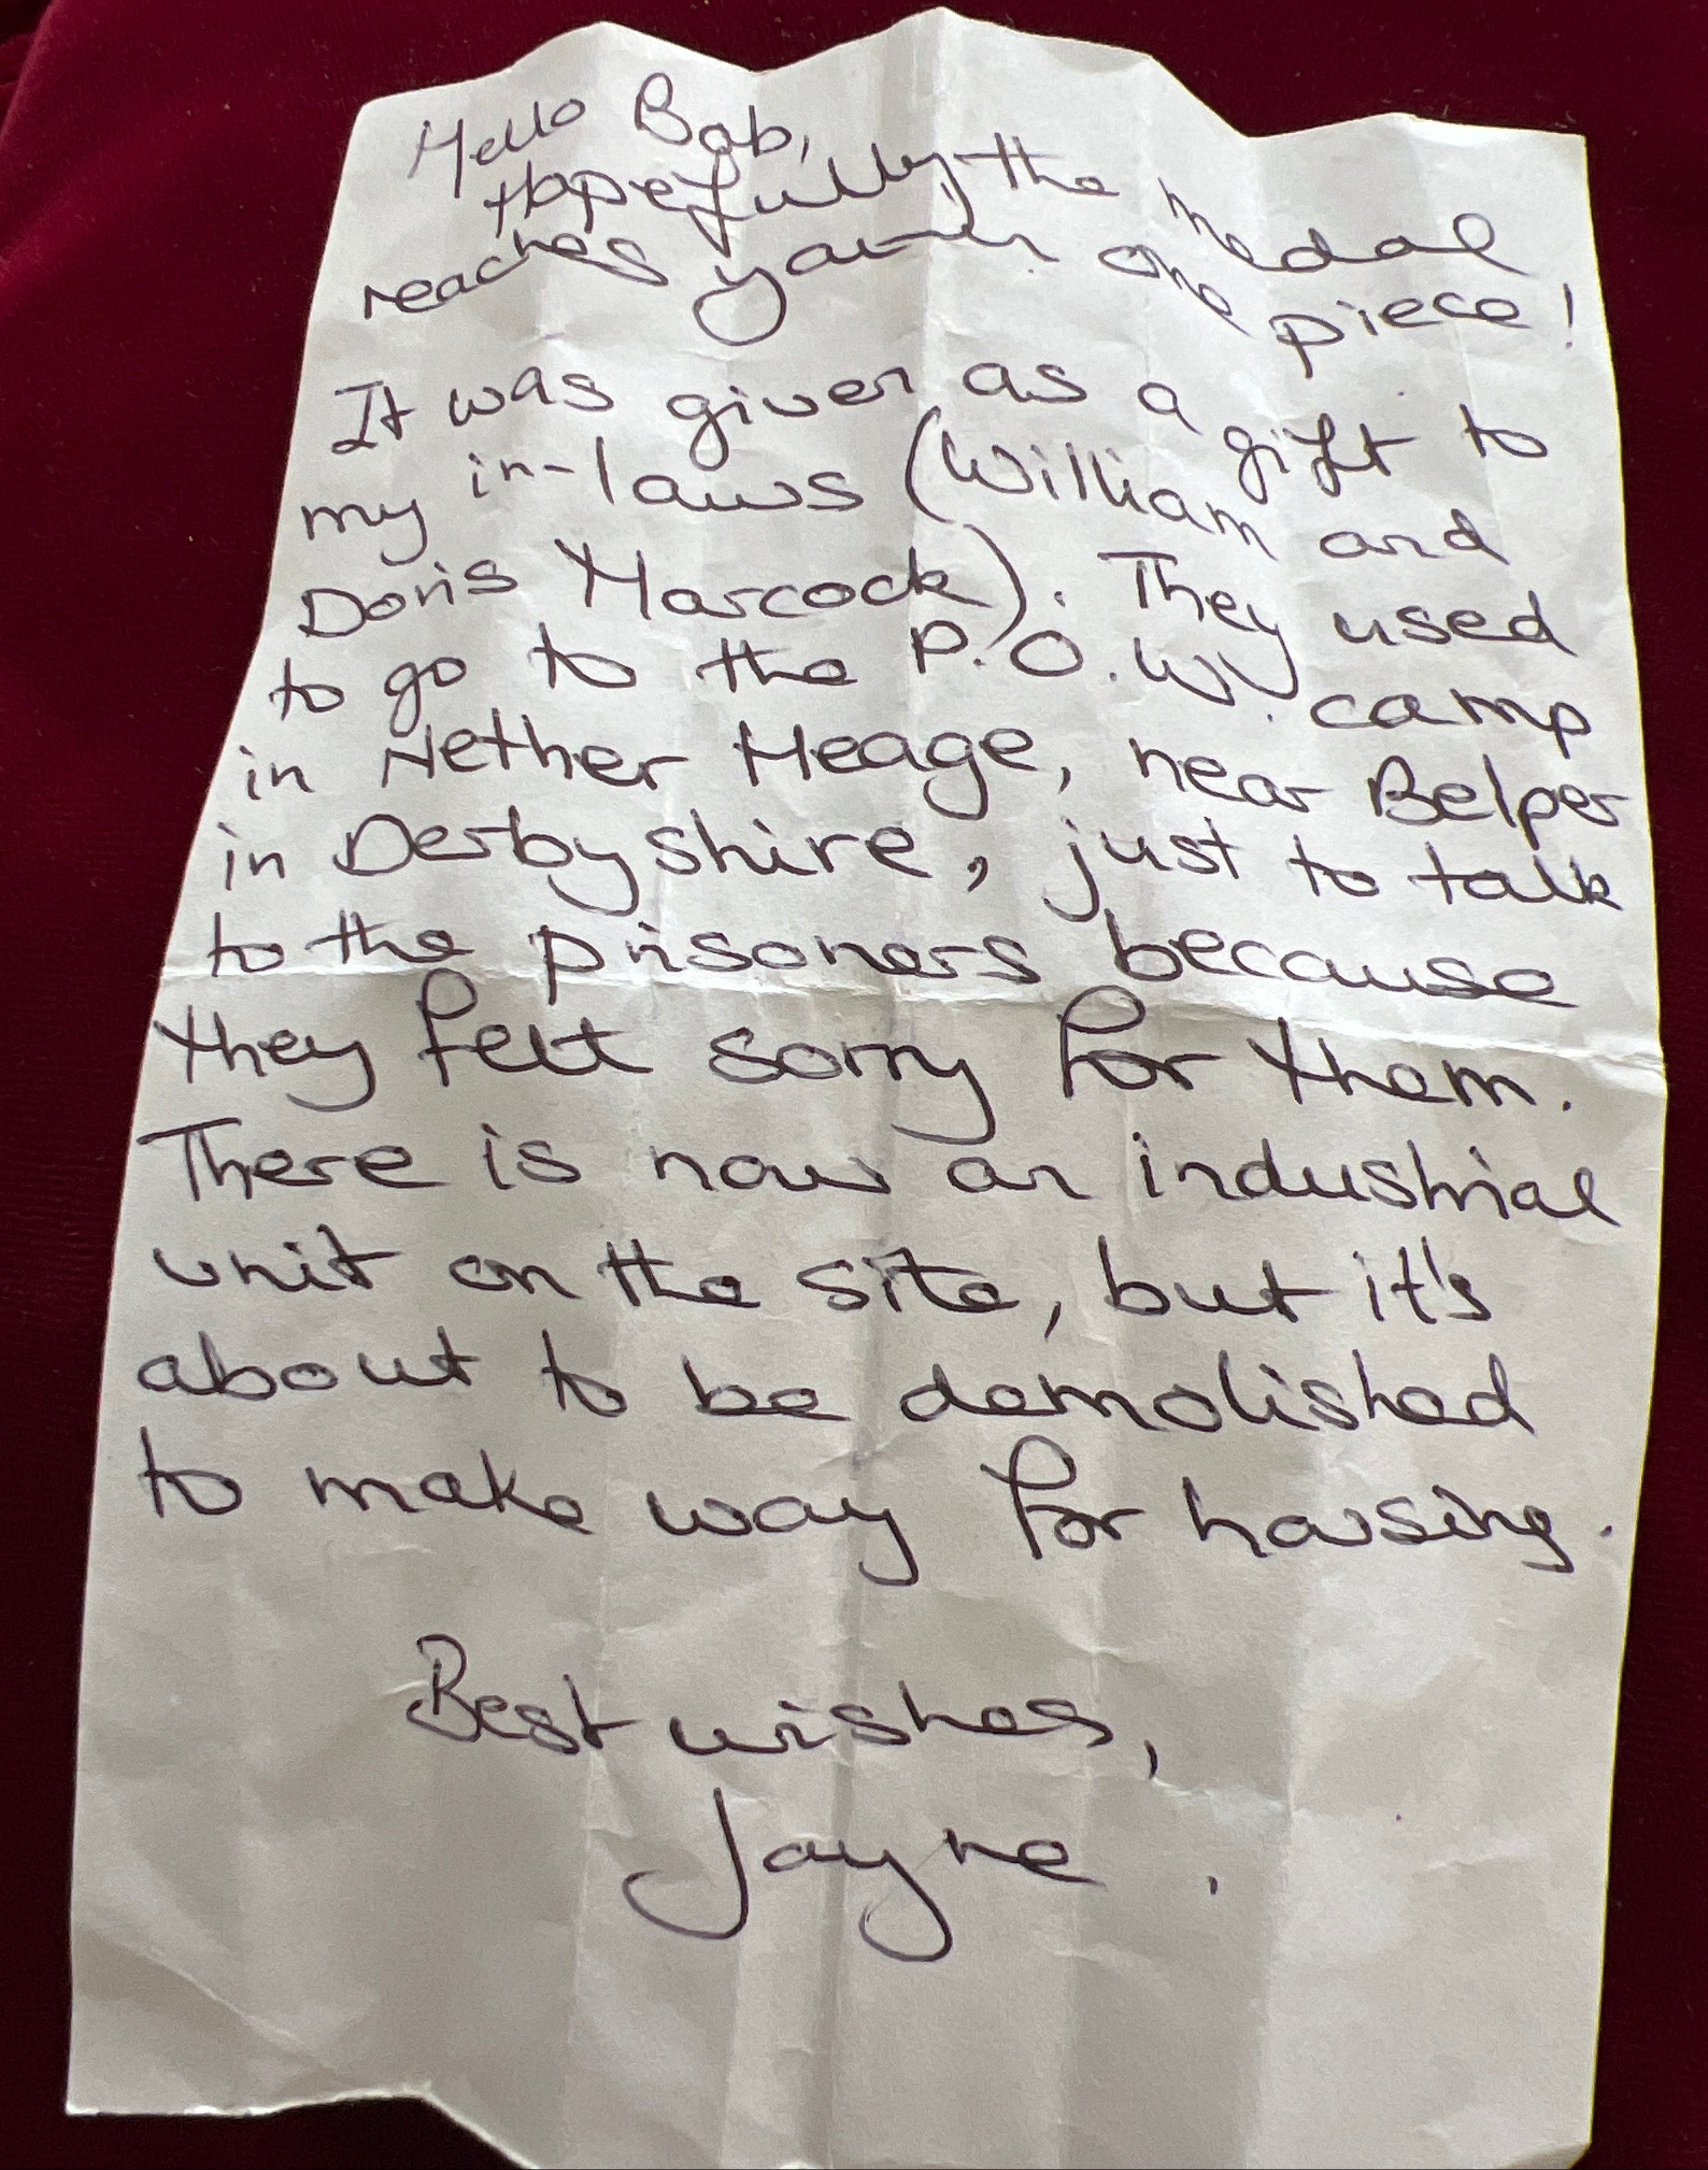 Hello Bob,
Hopefully the medal
reaches you in one piece!
It was given as a gift to
my in-laws (William and
Doris Harcock). They used
to go to the P.O.W. camp
in Nether Heage, near Belper
in Derbyshire, just to talk
to the prisoners because
they felt sorry for them.
There is now an industrial
unit on the site, but it's
about to be demolished
to make way for housing.
Best wishes,
Jayne.